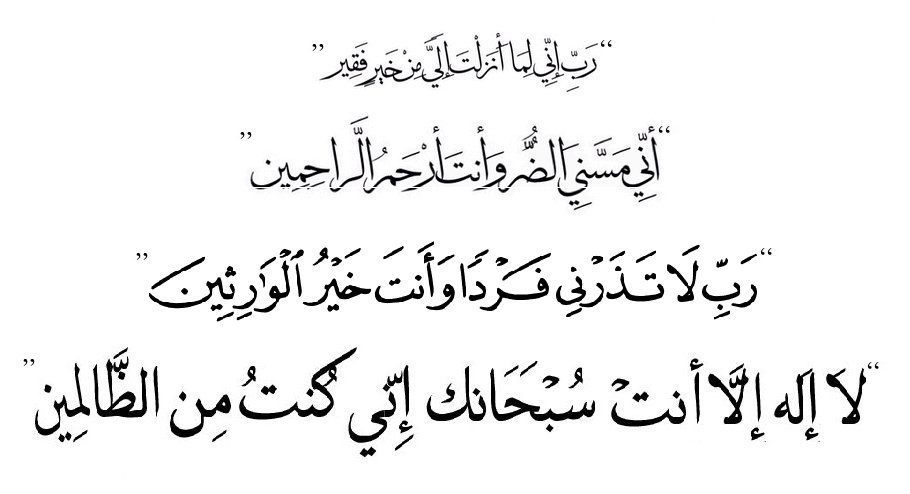 “رَبِّ إِنِّي لِمَا أَنزَلْتَ إِلَيَّ مِنْ خَيْرٍ فَقِير”
“أَنِّي مَسَّنِيَ الضُّرُّ وَأَنتَ أَرْحَمُ الرَّاحِمِين”
“رَبِّ لَا تَذَرْنِي فَرْدًا وَأَنتَ خَيْرُ الْوَارِثِينَ”
“لاَ إِلَه إِلَّا أنتْ سُبْحَانك إِنِّي كُنتُ مِن الظَّالِمِين”